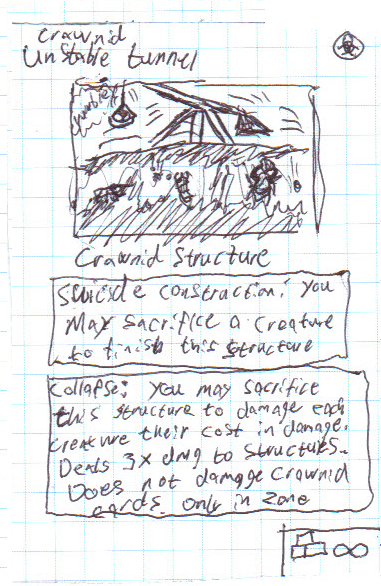 Crawnid
Unstable tunnel
rumble!
Crawnid Structure
Suicide construction: you
May sacrifice a creature
to finish this structure
Collapse: you may sacrifice
this structure to damage each
creature their cost in damage.
Deals 3x dmg to structures.
Does not damage Crawnid
cards. only in zone
∞